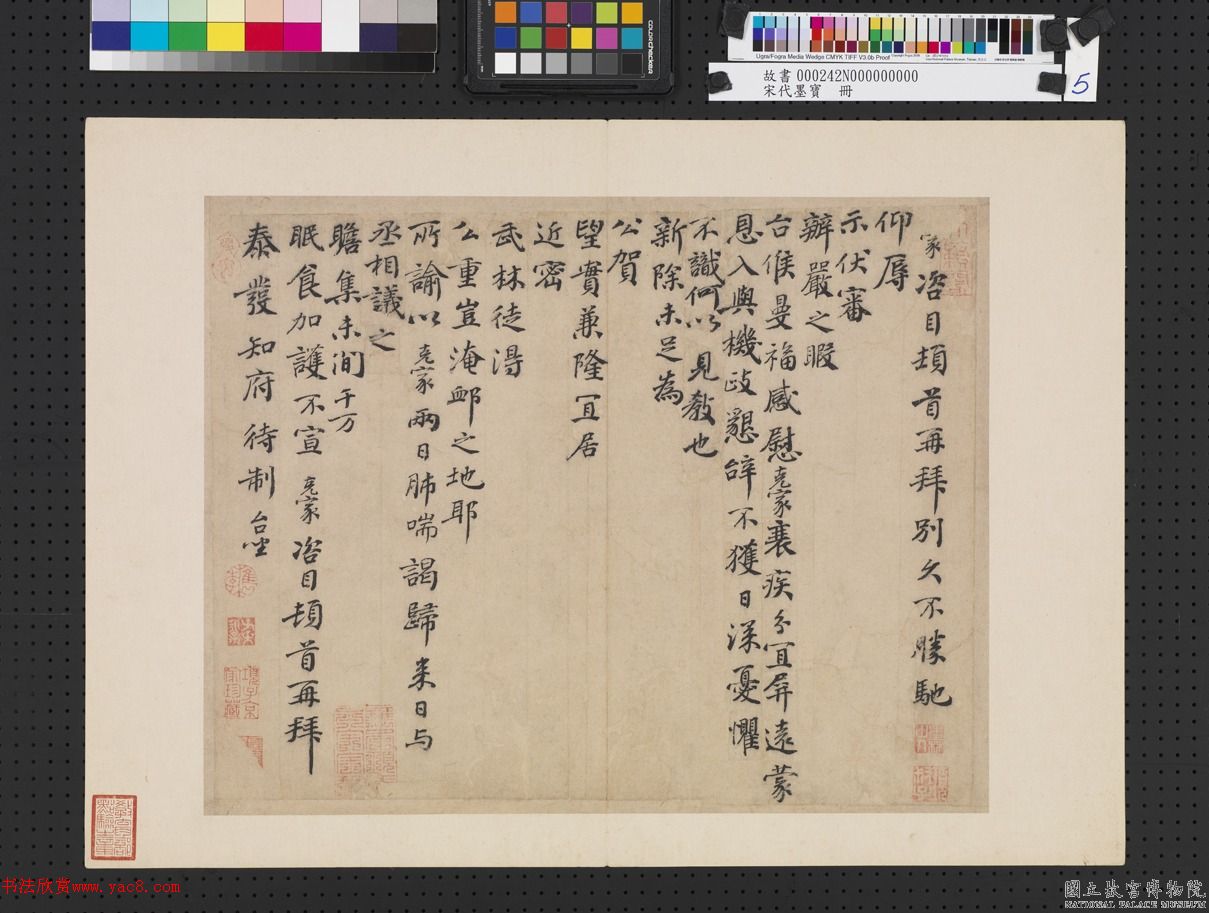 colorchecker
Ugra/Fogra Media Wedge CMYK TIFF V3.0b Proof
故書 000242N000000000
宋代墨寶 冊
5
家冾目頓首再拜別久不勝馳
仰辱
示伏審
辦嚴之暇
台候曼福感慰克家衰疾分宜屏遠蒙
恩入與機政懇辞不獲日深憂懼
不識何以見教也
新除未足為
公賀
望實兼隆宜居
近密
武林徒淂
公重豈淹郵之地耶
所諭以克家兩日肺喘謁歸来日与
丞相議之
瞻集未間千万
眠食加護不宣克家冾目頓首再拜
泰發知府待制台坐
教育部點驗之章
书法欣赏www.yac8.com
國立故宮博物院
NATIONAL PALACE MUSEUM